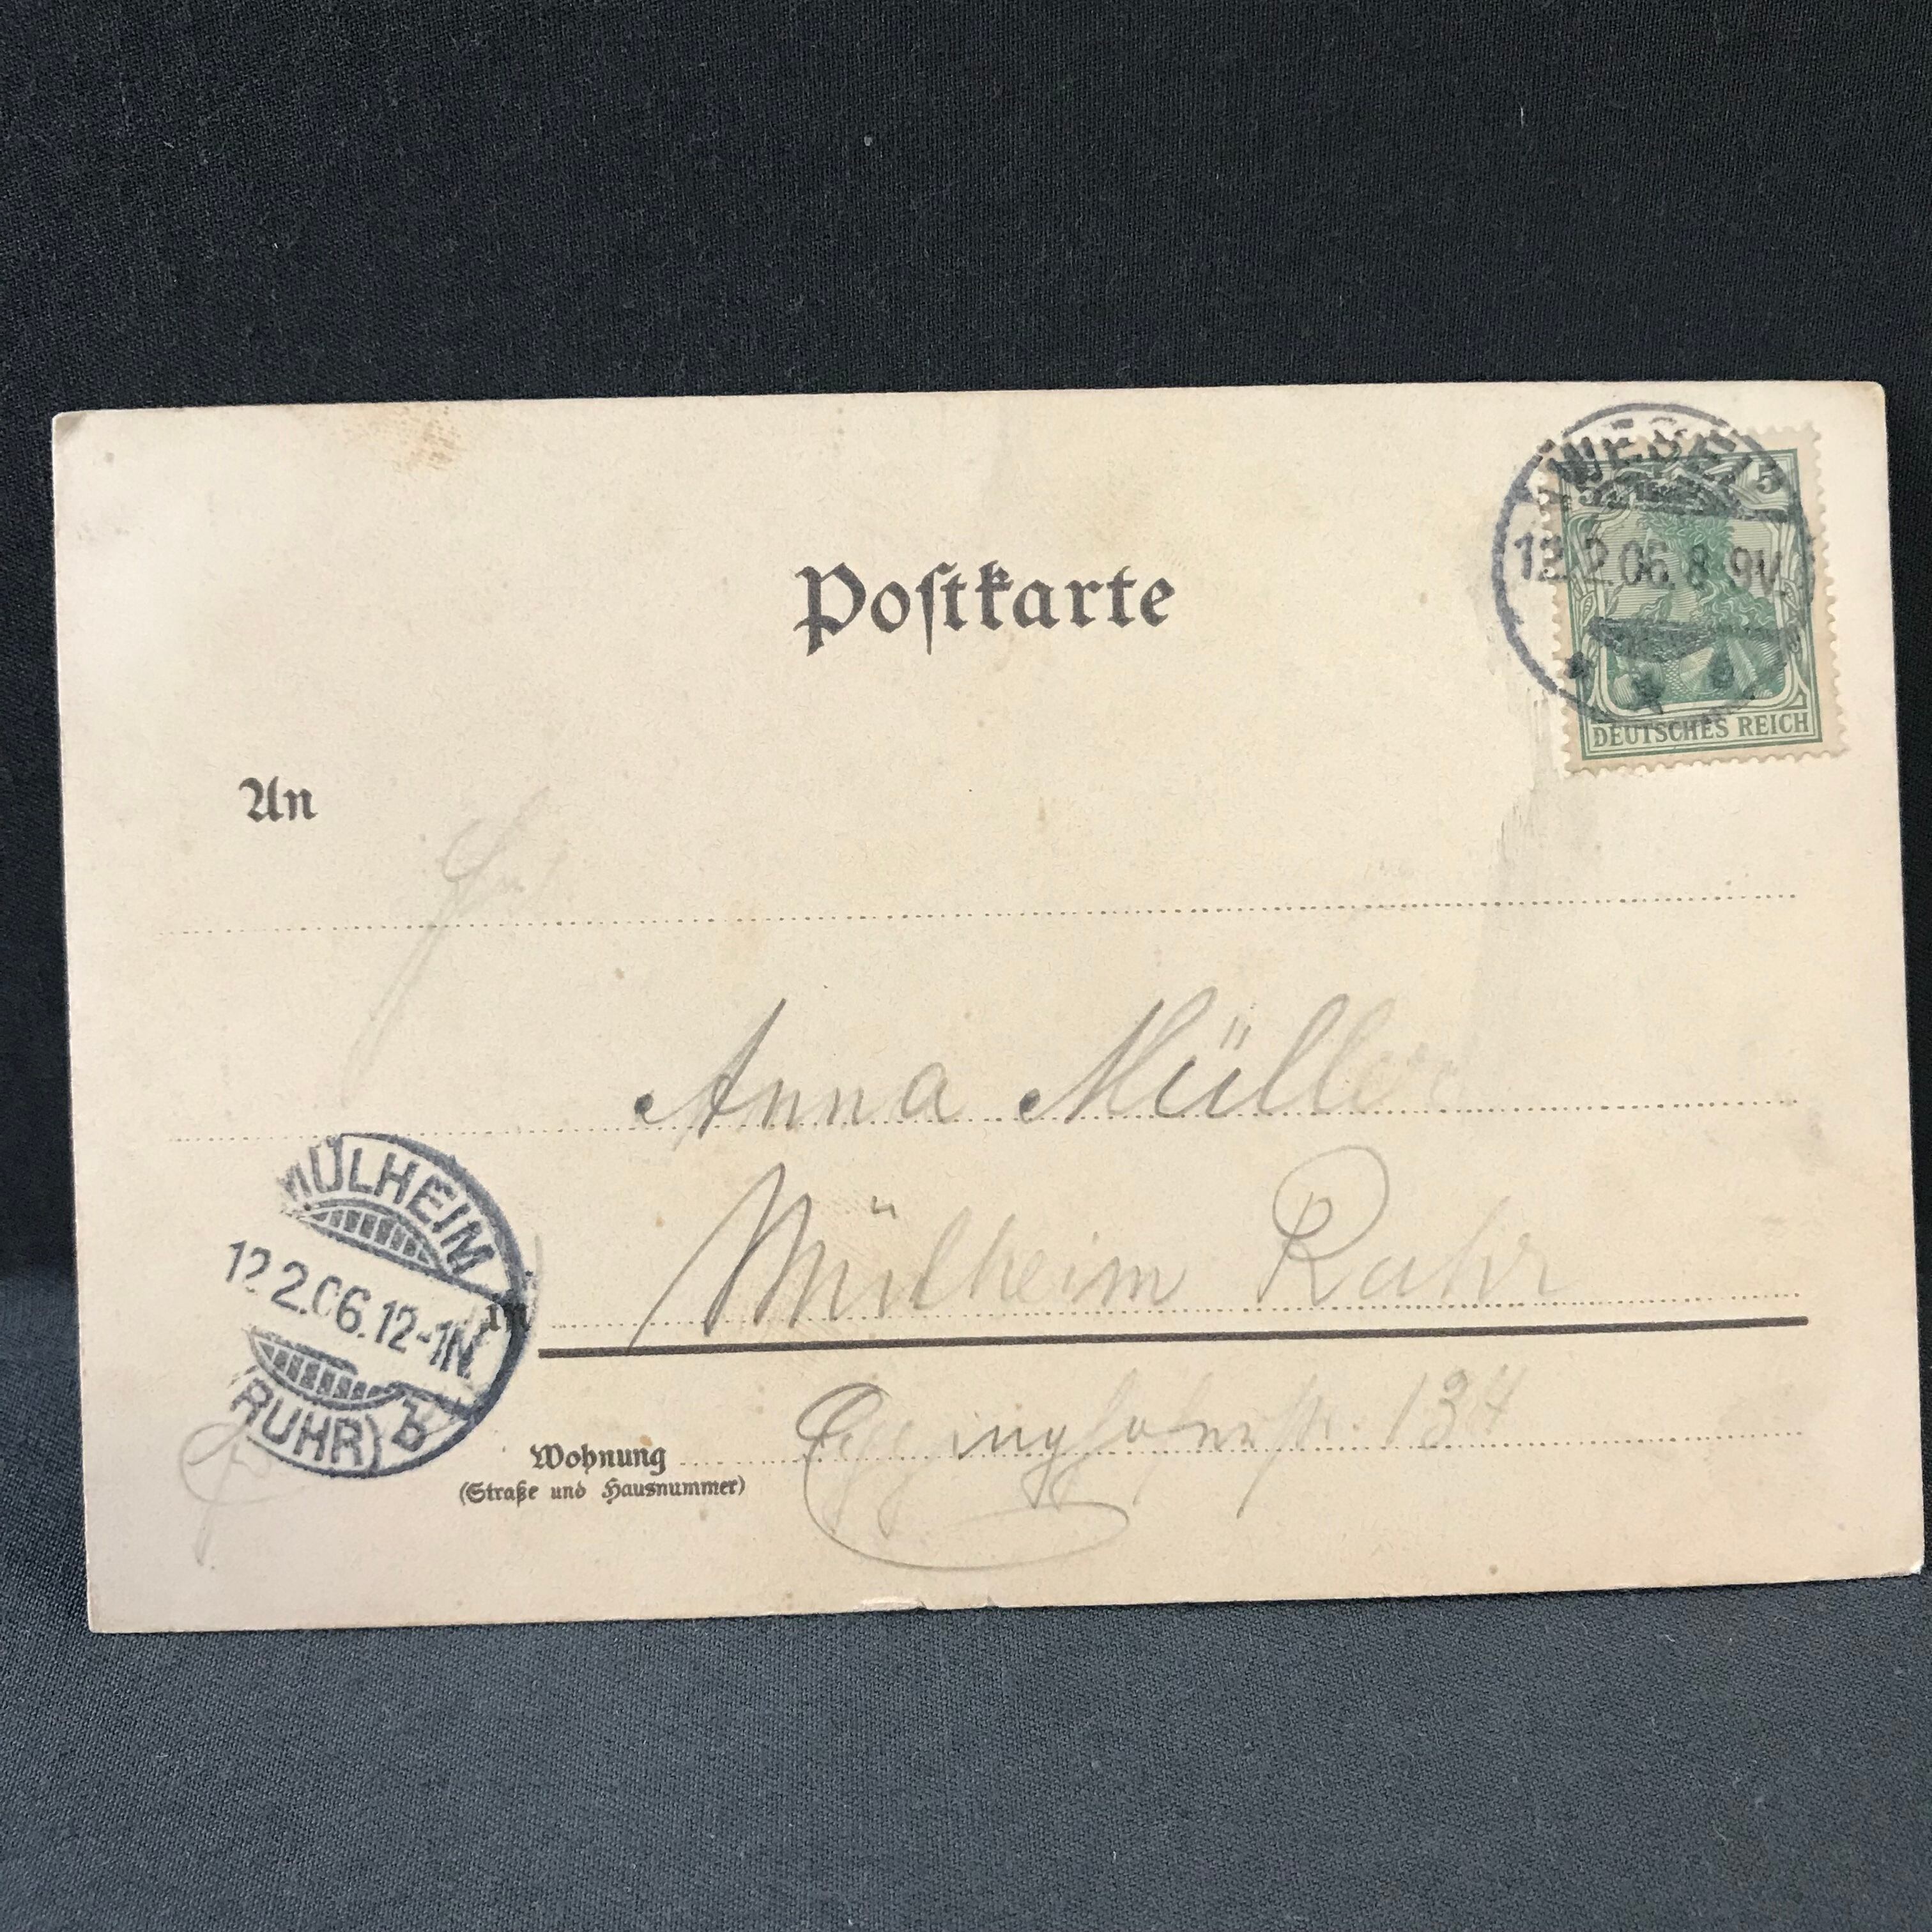 Postkarte
WESEL
5
12.2.06.8-9V.
DEUTSCHES REICH
An
Frl.
Anna Müller
MÜLHEIM
12.2.06.12-1N
(RUHR) b
in Mülheim Ruhr
Wohnung 134
(Straße und Hausnummer)